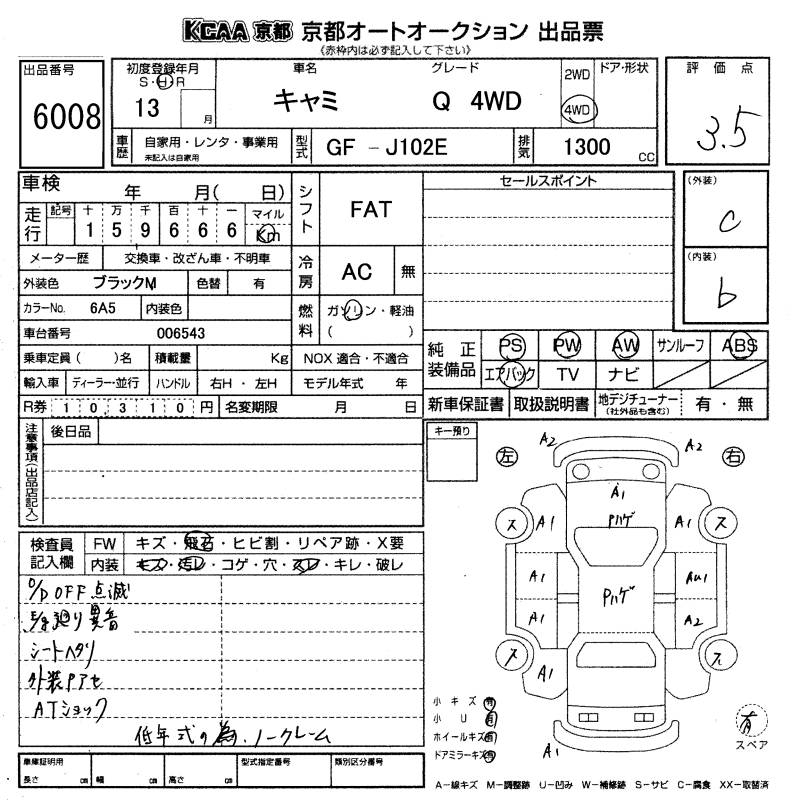 KCAA 京都 京都オートオークション 出品票
《赤枠内は必ず記入して下さい》
出品番号
6008
初度登録年月
S・H・R
13
月
車名
キャミ
グレード
Q 4WD
2WD
4WD
ドア・形状
評価点
3.5
車歴
自家用・レンタ・事業用
未記入は自家用
型式
GF - J102E
排気
1300 CC
車検 年 月( 日)
走行
記号 十 万 千 百 十 一 マイル
1 5 9 6 6 6 Km
メーター歴 交換車・改ざん車・不明車
外装色 ブラックM 色替 有
カラーNo. 6A5 内装色
車台番号 006543
乗車定員( )名 積載量 Kg NOX 適合・不適合
輸入車 ディーラー・並行 ハンドル 右H・左H モデル年式 年
R券 10,310円 名変期限 月 日
シフト FAT
冷房 AC 無
燃料 ガソリン・軽油
( )
セールスポイント
(外装)
C
(内装)
b
純正装備品
PS PW AW サンルーフ ABS
エアバック TV ナビ
新車保証書 取扱説明書 地デジチューナー
(社外品も含む)
有・無
注意事項(出品店記入)
後日品
キー預り
左
右
A2
A2
A1
Pハゲ
ス
A1
A1
ス
A1
Pハゲ
AU1
A1
A2
ス
A1
ス
A1
検査員記入欄
FW キズ・飛石・ヒビ割・リペア跡・X要
内装 キズ・汚レ・コゲ・穴・スレ・キレ・破レ
O/D OFF 点滅
廻り異音
シートヘタリ
外装Pアセ
ATショック
低年式の為、ノークレーム
小キズ 有
小U 有
ホイールキズ 有
ドアミラーキズ 有
有
スペア
車庫証明用
長さ cm 幅 cm 高さ cm
型式指定番号
類別区分番号
A-線キズ M-調整跡 U-凹み W-補修跡 S-サビ C-腐食 XX-取替済